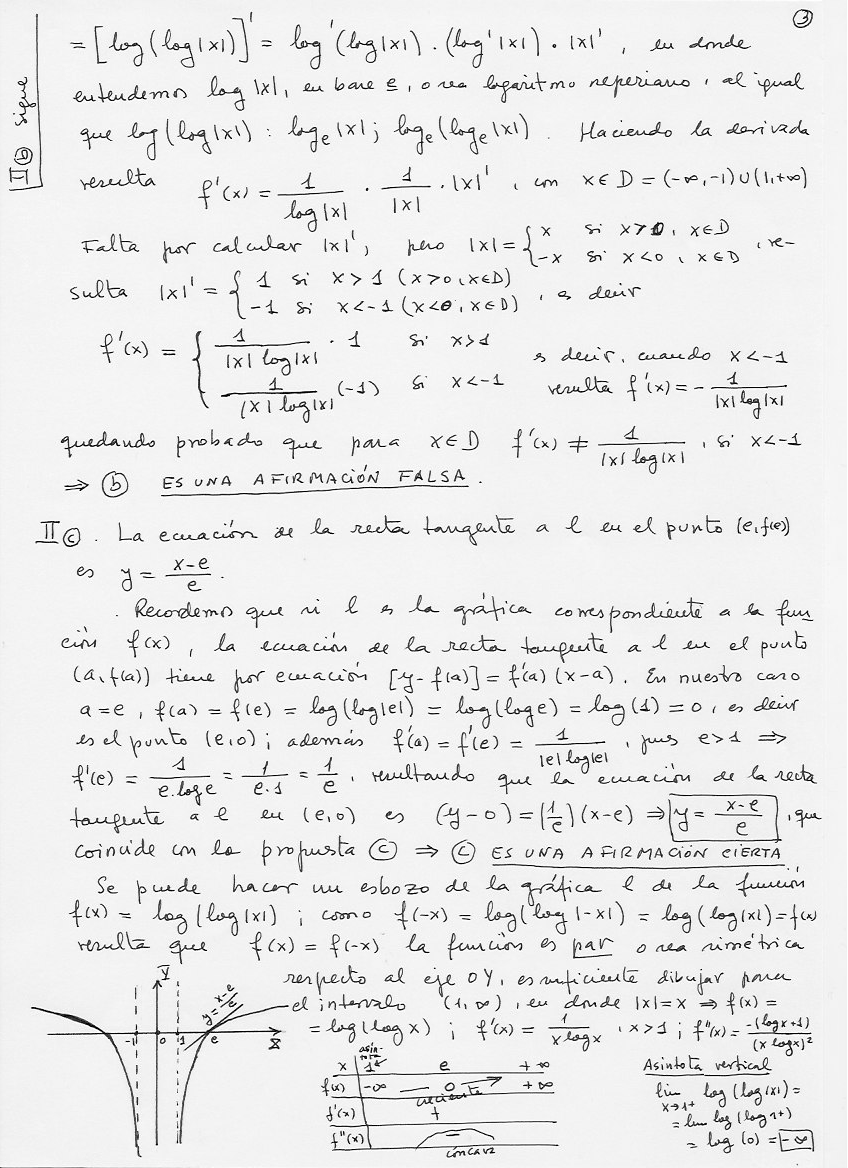 ③
II ⓑ sigue
= [log(log|x|)]' = log'(log|x|) · (log'|x|) · |x|' , en donde
entendemos log |x|, en base e, o sea logaritmo neperiano, al igual
que log(log|x|) : logₑ|x| ; logₑ(logₑ|x|) . Haciendo la derivada
resulta f'(x) = 1/log|x| · 1/|x| · |x|' , con x∈D = (-∞,-1)∪(1,+∞)
Falta por calcular |x|' , pero |x| = { x si x>0, x∈D ; -x si x<0, x∈D , re-
sulta |x|' = { 1 si x>1 (x>0, x∈D) ; -1 si x<-1 (x<0, x∈D) , es decir
f'(x) = { 1/(|x| log|x|) · 1 si x>1 ; 1/(|x| log|x|) (-1) si x<-1
es decir, cuando x<-1
resulta f'(x) = - 1/(|x| log|x|)
quedando probado que para x∈D f'(x) ≠ 1/(|x| log|x|) , si x<-1
⇒ ⓑ ES UNA AFIRMACIÓN FALSA .
II ⓒ . La ecuación de la recta tangente a l en el punto (e, f(e))
es y = (x-e)/e .
. Recordemos que si l es la gráfica correspondiente a la fun
ción f(x) , la ecuación de la recta tangente a l en el punto
(a, f(a)) tiene por ecuación [y-f(a)] = f'(a) (x-a) . En nuestro caso
a=e , f(a) = f(e) = log(log|e|) = log(log e) = log(1) = 0 , es decir
es el punto (e,0) ; además f'(a) = f'(e) = 1/(|e| log|e|) , pues e>1 ⇒
f'(e) = 1/(e.log e) = 1/(e.1) = 1/e , resultando que la ecuación de la recta
tangente a l en (e,0) es (y-0) = (1/e) (x-e) ⇒ y = (x-e)/e , que
coincide con la propuesta ⓒ ⇒ ⓒ ES UNA AFIRMACIÓN CIERTA
Se puede hacer un esbozo de la gráfica l de la función
f(x) = log(log|x|) ; como f(-x) = log(log|-x|) = log(log|x|) = f(x)
resulta que f(x) = f(-x) la función es par o sea simétrica
respecto al eje OY, es suficiente dibujar para
el intervalo (1,∞) , en donde |x|=x ⇒ f(x) =
= log(log x) ; f'(x) = 1/(x log x) , x>1 ; f''(x) = -(log x+1)/(x log x)²
Y
y = (x-e)/e
-1 0 1 e X
asíntota
x 1 e +∞
f(x) -∞ 0 +∞
creciente
f'(x) +
f''(x) -
cóncava
Asíntota vertical
lim x→1+ log(log|x|) =
= lim log(log 1+)
= log(0) = -∞